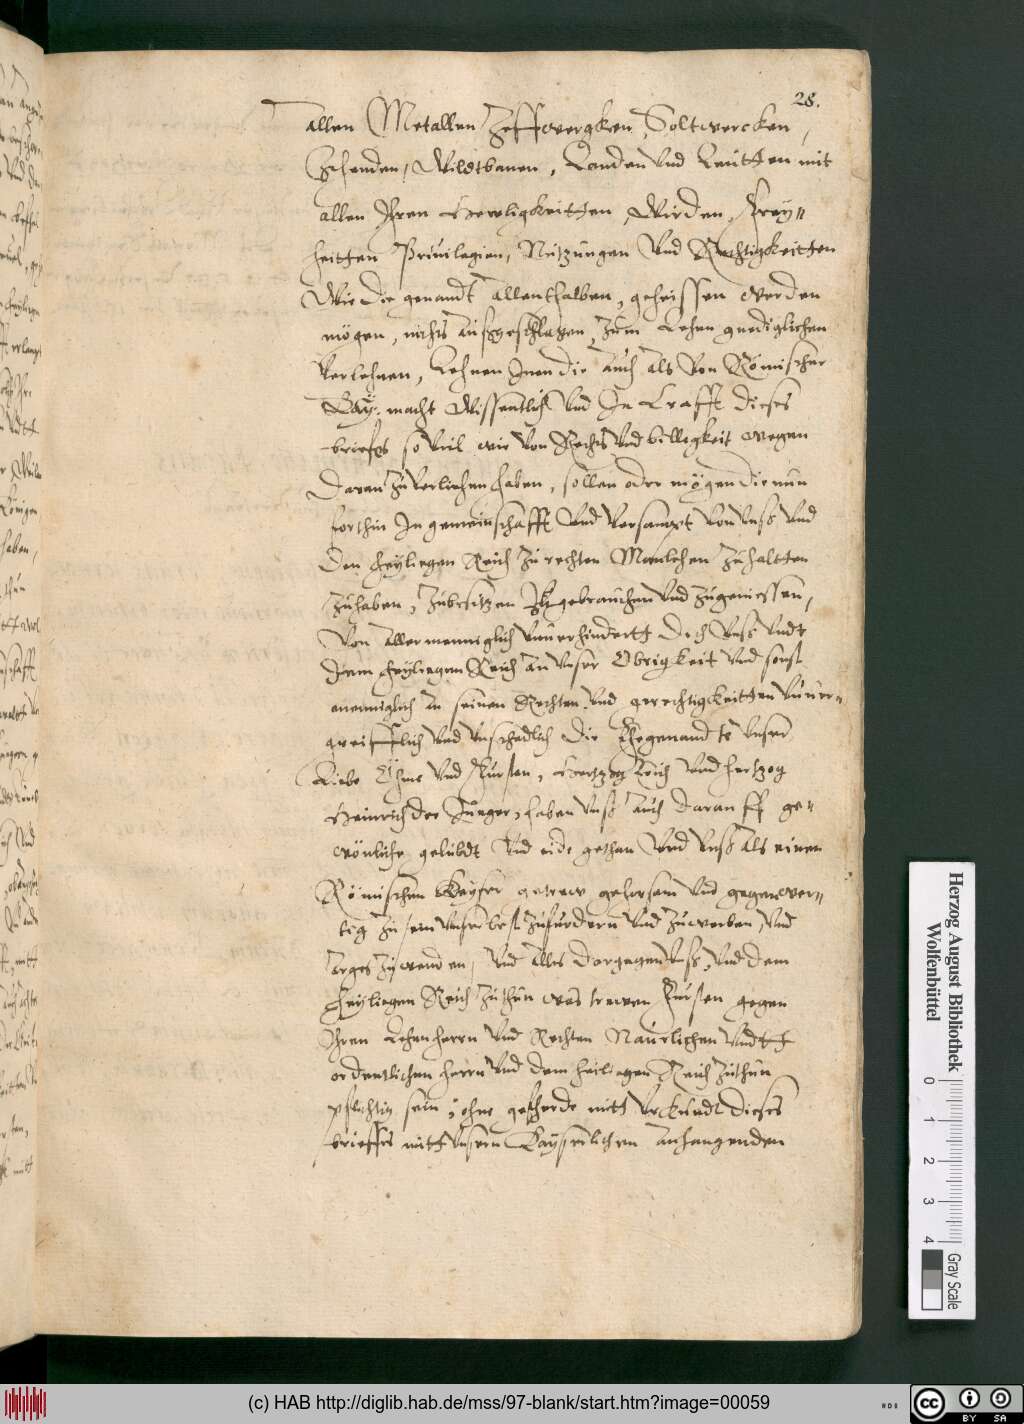 28.
allen Metallen Zeffwergken, Soltwercken,
Zehenden, Wildtbanen, Landen vnd Leutten mit
allen Ihren Herrligkeitten, Wirden, Frey„
heitten Priuilegien, Nutzungen Vnd Rechtigkeitten
Wie die genandt allenthalben, geheissen werden
mögen, nichts außgeschlaßen, zum Lehen gnediglichen
Verlehnen, Lehnen Inen die auch als Von Römischer
Kay. macht Wissentlich Vnd In Crafft dieses
brieffs so viil wir von Rechts Vnd billigkeit wegen
daran zu Verliehen haben, sollen oder mögen die nun
forthin In gemeinschafft Vnd Versampt Von Vnß Vnd
den heyliegen Reich zu rechten Manlehen zu haltten
zu haben, zu besitzen zu gebrauchen Vnd zu geniessen,
Von allermenniglich Vnuerhindertt doch Vnß Vndt
dem heyliegen Reich an Vnser Obrigkeit Vnd sonst
menniglich an seinen Rechten Vnd gerechtigkeitten Vnuer„
greifflich Vnd Vnschedlich die Ehegenandte Vnser
Liebe Öhme Vnd Fursten, Hertzog Erich Vnd Hertzog
Heinrich der Junger, haben Vnß auch daran ff ge„
wönliche gelubdt Vnd eide gethan Vnd Vnß als einen
Römischen Kayser getrew gehorsam Vnd gegenwer„
tig zu sein Vnser best zufurdern Vnd zuwerben, Vnd
arges zuwenden, Vnd alles dargegen Vnß, Vnd dem
heyliegen Reich zuthun was trewen Fursten gegen
Ihren Lehenherrn Vnd Rechten Naturlichen Vndtt
ordentlichen herrn Vnd dem heiliegen Reich zuthun
pflichtig sein, ohne geferde mitt Vrkundt dieses
brieffs mitt Vnsern Kayserlichen anhangenden
Herzog August Bibliothek
Wolfenbüttel
0 1 2 3 4
Gray Scale
(c) HAB http://diglib.hab.de/mss/97-blank/start.htm?image=00059
HAB
cc BY SA